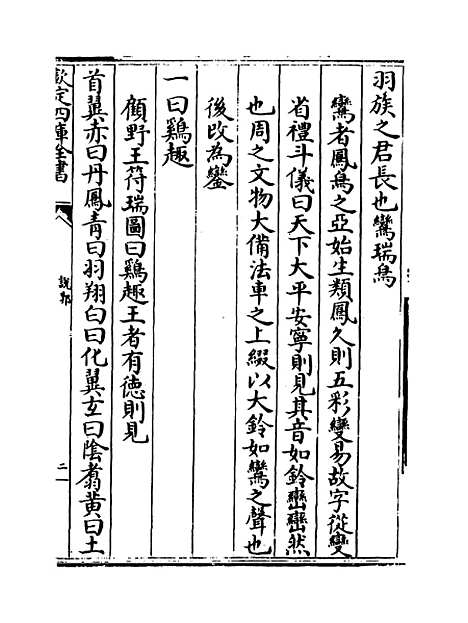 羽族之君長也鸞瑞鳥
鸞者鳳鳥之亞始生類鳳久則五彩變易故字從變
省禮斗儀曰天下大平安寧則見其音如鈴巒巒然
也周之文物大備法車之上綴以大鈴如鸞之聲也
後改為鑾
一曰鷄趣
顧野王符瑞圖曰鷄趣王者有徳則見
首翼赤曰丹鳳青曰羽翔白曰化翼玄曰陰翥黄曰土
欽定四庫全書
說郛
二一